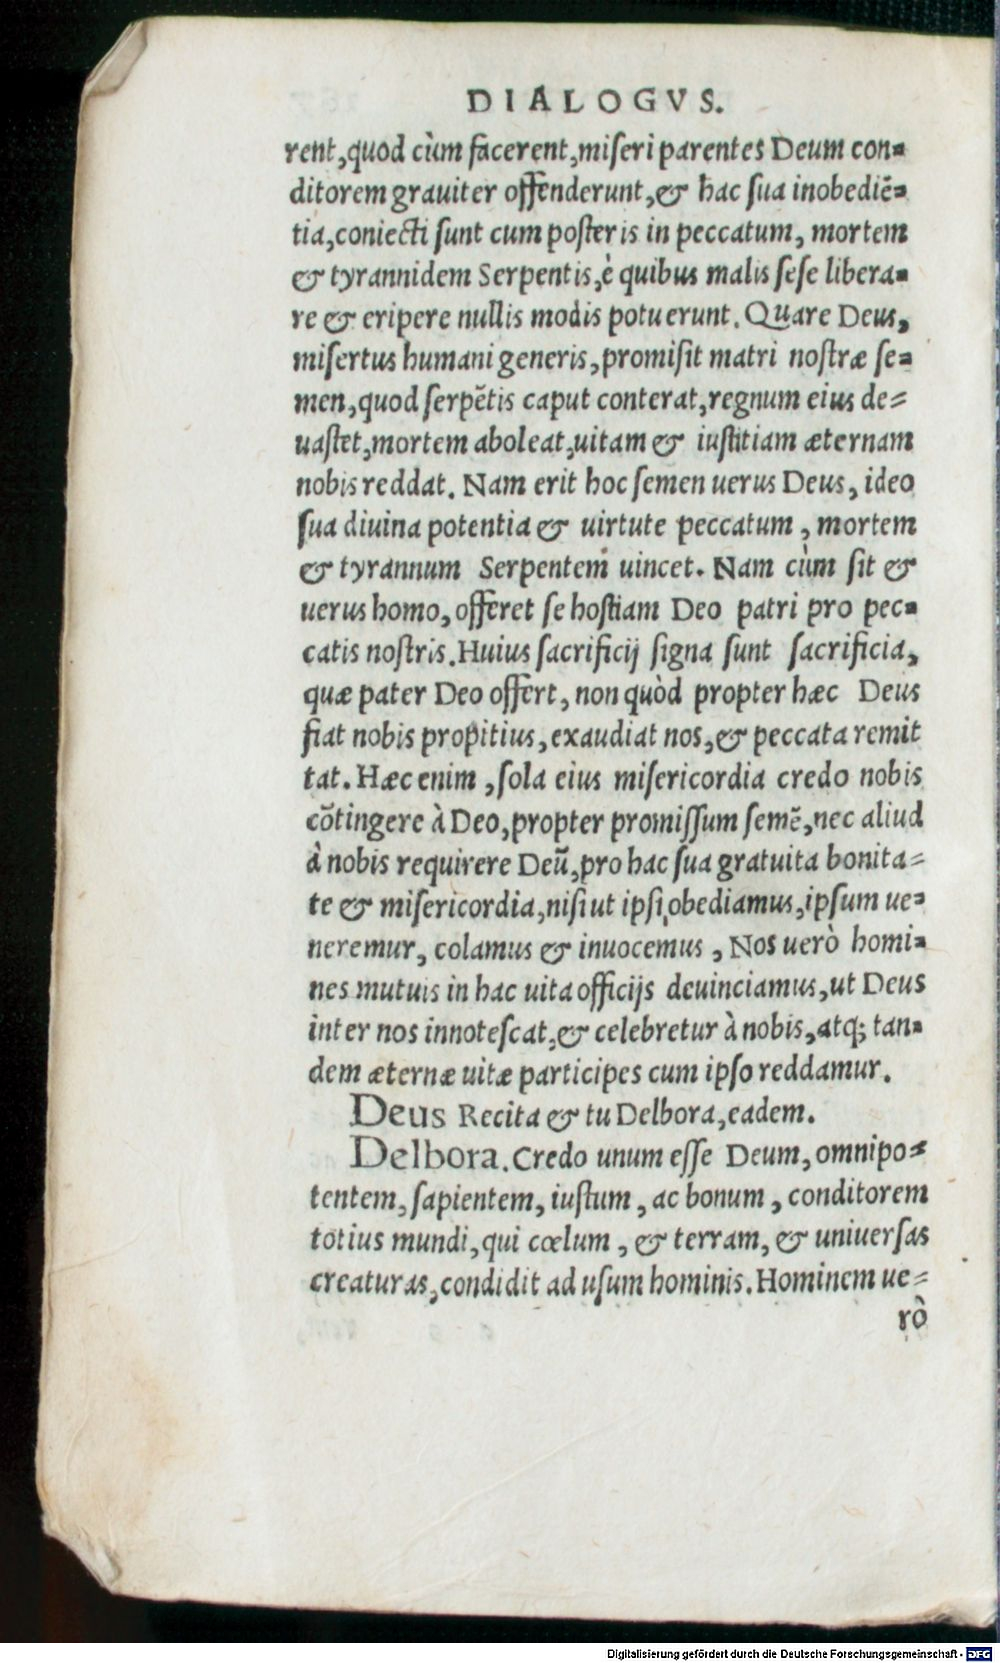 DIALOGVS.
rent, quod cùm facerent, miseri parentes Deum con=
ditorem grauiter offenderunt, & hac sua inobediē=
tia, coniecti sunt cum posteris in peccatum, mortem
& tyrannidem Serpentis, è quibus malis sese libera=
re & eripere nullis modis potuerunt. Quare Deus,
misertus humani generis, promisit matri nostræ se=
men, quod serpētis caput conterat, regnum eius de=
uastet, mortem aboleat, uitam & iustitiam æternam
nobis reddat. Nam erit hoc semen uerus Deus, ideo
sua diuina potentia & uirtute peccatum, mortem
& tyrannum Serpentem uincet. Nam cùm sit &
uerus homo, offeret se hostiam Deo patri pro pec=
catis nostris. Huius sacrificij signa sunt sacrificia,
quæ pater Deo offert, non quòd propter hæc Deus
fiat nobis propitius, exaudiat nos, & peccata remit
tat. Hæc enim, sola eius misericordia credo nobis
cōtingere à Deo, propter promissum semē, nec aliud
à nobis requirere Deū, pro hac sua gratuita bonita=
te & misericordia, nisi ut ipsi obediamus, ipsum ue=
neremur, colamus & inuocemus, Nos uerò homi=
nes mutuis in hac uita officijs deuinciamus, ut Deus
inter nos innotescat, & celebretur à nobis, atq; tan=
dem æternæ uitæ participes cum ipso reddamur.
Deus Recita & tu Delbora, eadem.
Delbora. Credo unum esse Deum, omnipo=
tentem, sapientem, iustum, ac bonum, conditorem
totius mundi, qui cœlum, & terram, & uniuersas
creaturas, condidit ad usum hominis. Hominem ue=
rò
Digitalisierung gefördert durch die Deutsche Forschungsgemeinschaft - DFG